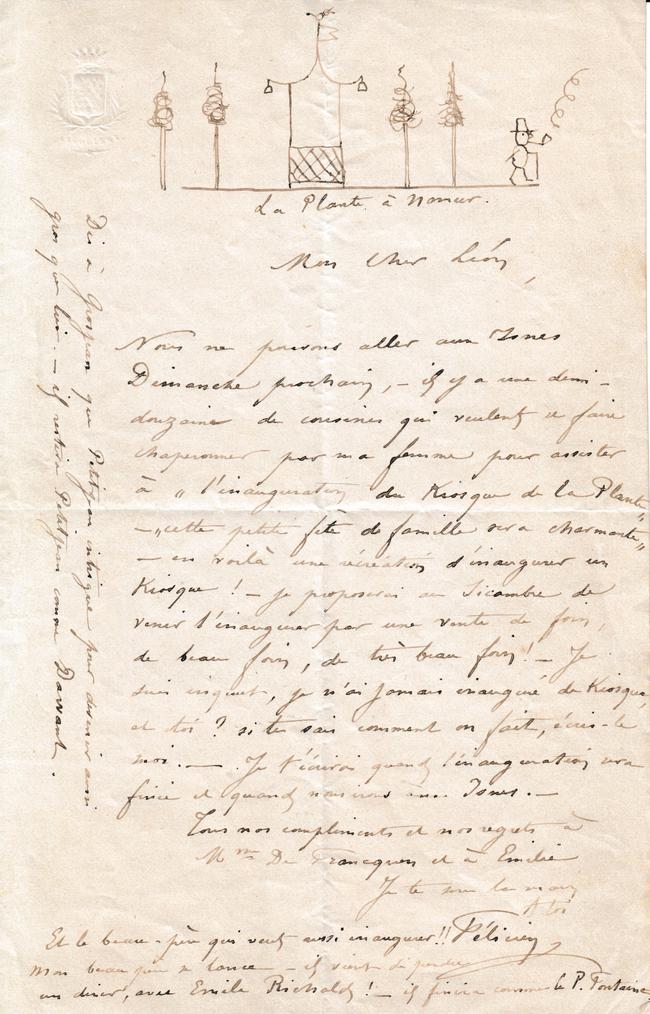 La Plante à Namur.
Mon Cher Léon,
Nous ne pouvons aller aux Isnes
Dimanche prochain, - il y a une demi-
douzaine de cousines qui veulent se faire
chaperonner par ma femme pour assister
à " l'inauguration du Kiosque de la Plante "
- " cette petite fête de famille sera charmante "
- en voilà une récréation d'inaugurer un
Kiosque ! - je proposerai au Sicambre de
venir l'inaugurer par une vente de foin,
de beau foin, de très beau foin ! - Je
suis inquiet, je n'ai jamais inauguré de Kiosque,
et toi ? si tu sais comment on fait, écris-le
moi. — Je t'écrirai quand l'inauguration sera
finie et quand nous irons aux Isnes. -
Tous nos compliments et nos regrets à
Mme De Francquen et à Emilie
Je te serre la main
A toi
Félicien
Et le beau-père qui veut aussi inaugurer !!
mon beau père se lance - il vient de perdre
un dîner, avec Emile Richald ! - il finira comme le P. Fontaine,
Dis à Grosjean que Petitjean intrigue pour devenir aussi
gros que lui. - il restera Petitjean comme Davant.